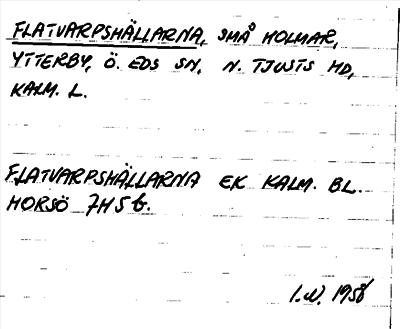 FLATVARPSHÄLLARNA, SMÅ HOLMAR,
YTTERBY, Ö. EDS SN, N. TJUSTS HD,
KALM. L.
FLATVARPSHÄLLARNA EK KALM. BL.
HORSÖ 7H5b.
I.W. 1958